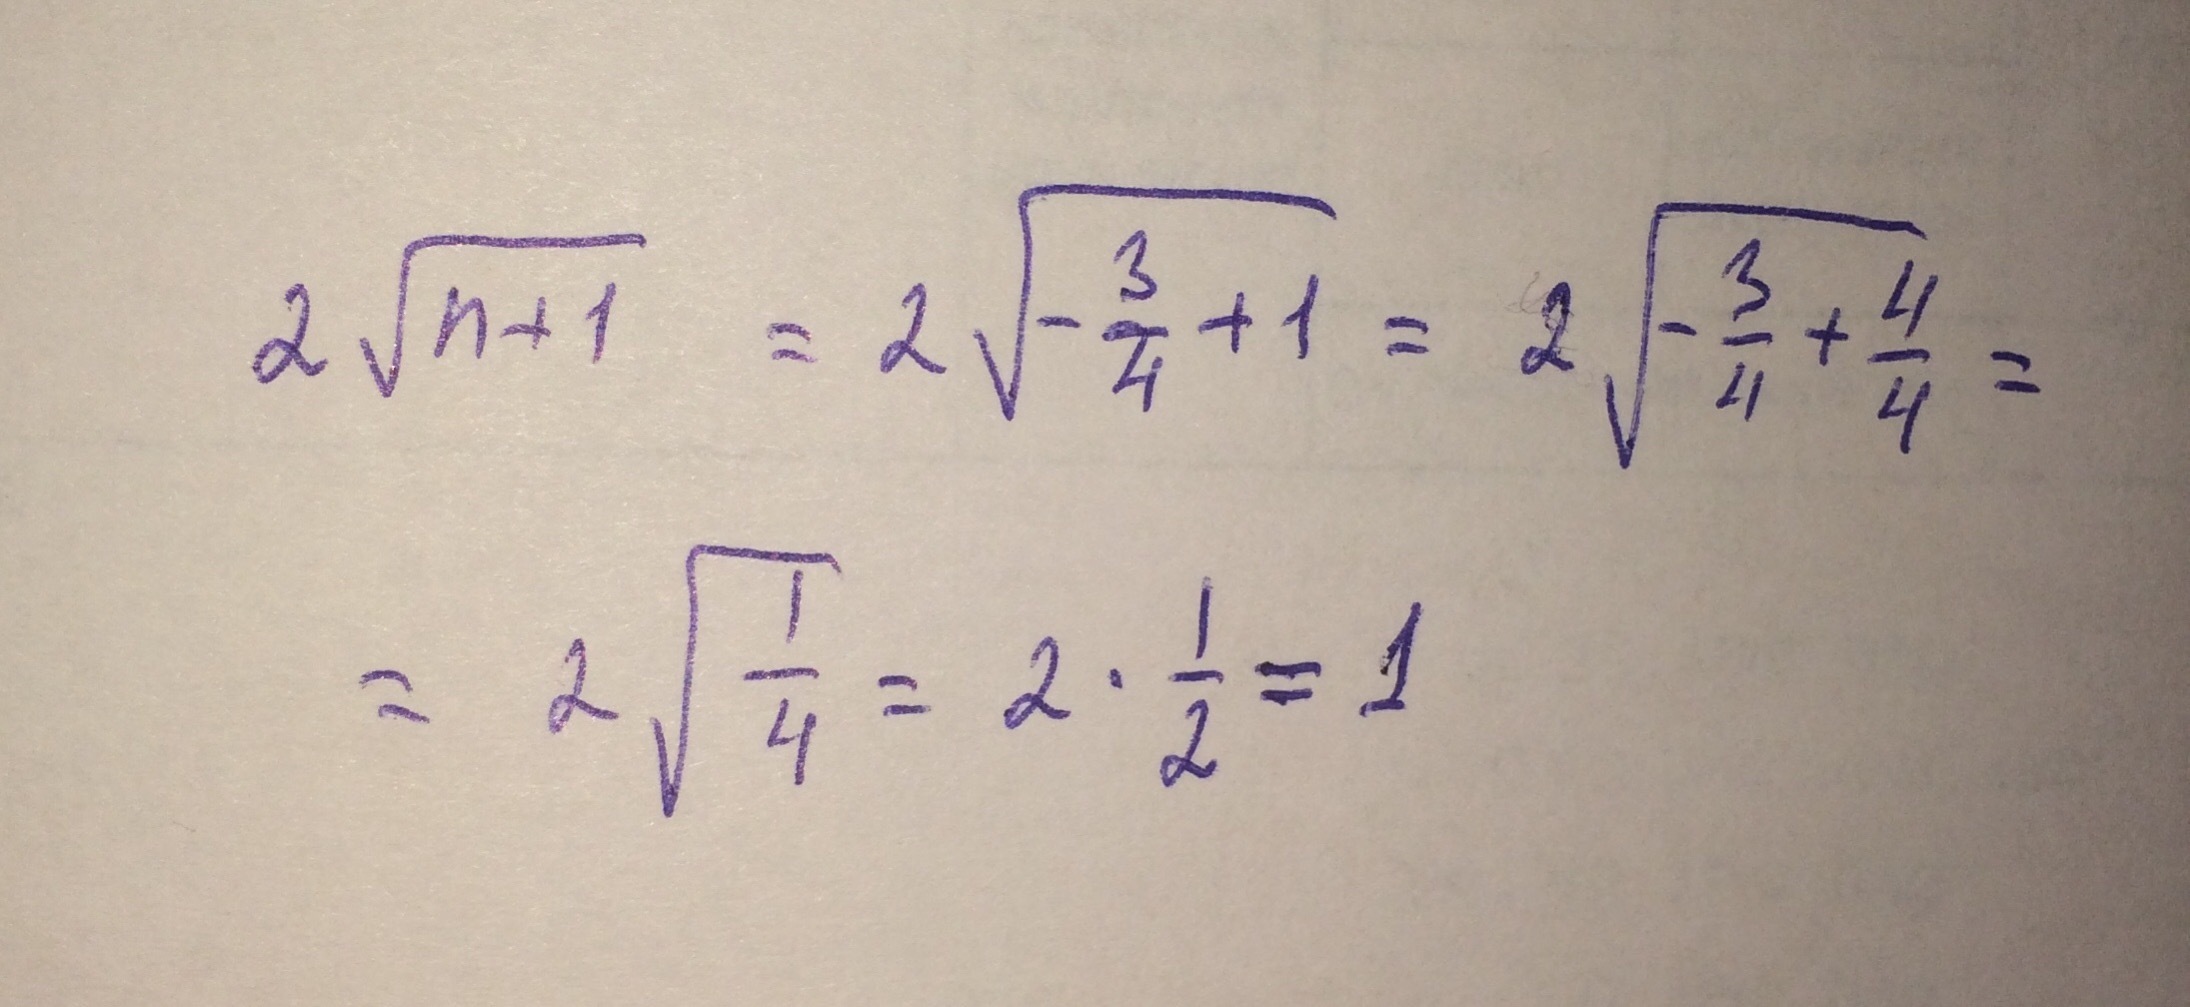 2√(n+1) = 2√(-3/4+1) = 2√(-3/4+4/4) =
= 2√(1/4) = 2 · 1/2 = 1